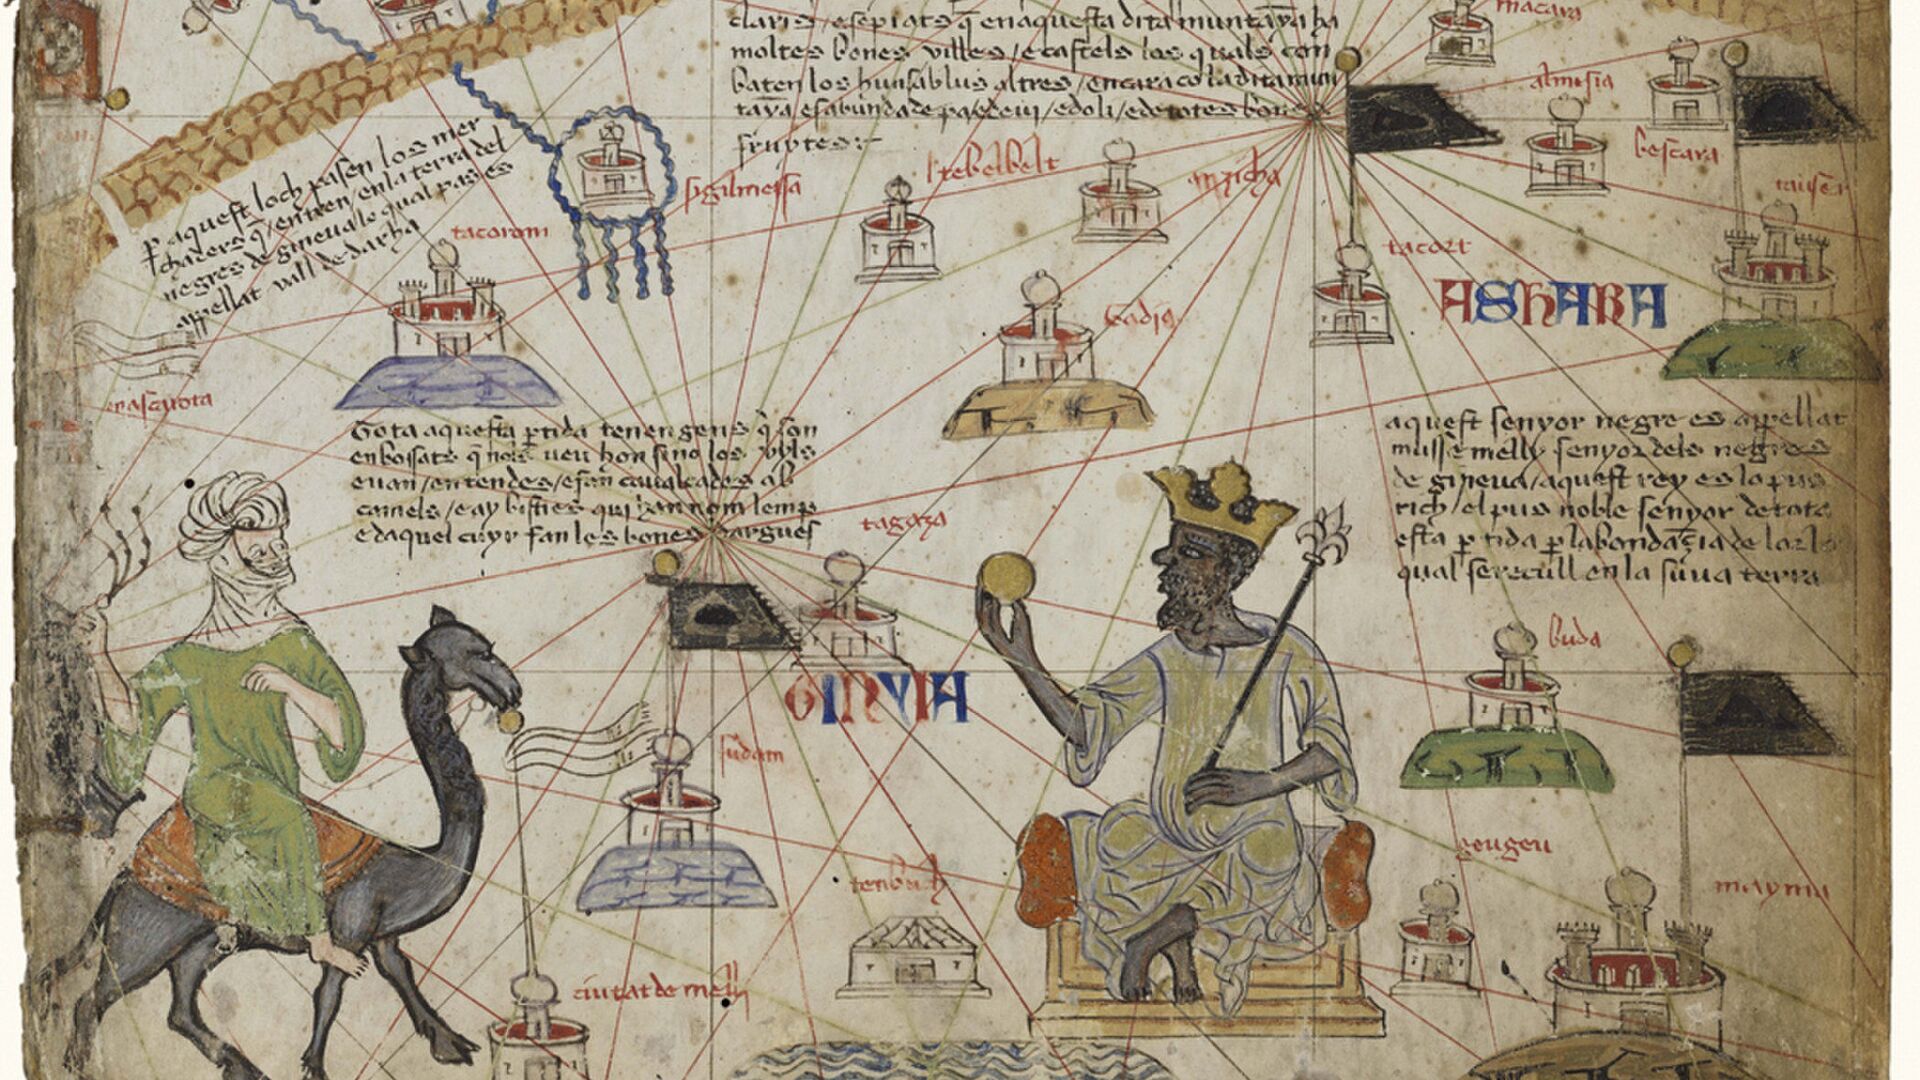 claris / e sepiats q̄ en aquesta dita muntaya ha
moltes bones villes / e castels los quals con
baten los huns ab lus altres / encara co la dita mun
taya es abunda de pa e de vi / e d oli / e de totes bones
fruytes
macara
almsia
bescara
ꝑ aquest loch pasen los mer
chaders q̄ / entren / en la terra del
negres de gineva lo qual pas es
appellat vall de darha
sigilmessa
tacoromi
tacort
ASHARA
Gota aquesta ꝑtida tenen gens q̄ son
enbossats q̄ nols veu hom sino los vyls
e van / en tendes / e fan cavalcades ab
camels / e ay bisties qui han nom lemp
e daquel cuyr fan les bones dargues
aquest senyor negre es appellat
musse melly senyor dels negres
de gineva / aquest rey es lo pus
rich / el pus noble senyor de tota
esta ꝑtida ꝑ labondançia de lor lo
qual se recull en la suua terra
tagaza
GINYIA
buda
sudam
tenbuch
geugeu
mayma
ciutat de melli